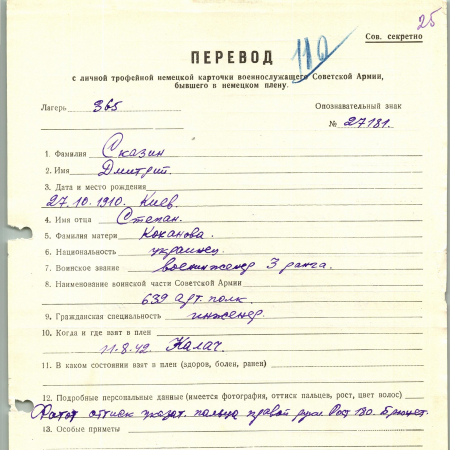 25
Сов. секретно
110
ПЕРЕВОД
с личной трофейной немецкой карточки военнослужащего Советской Армии,
бывшего в немецком плену.
Лагерь 365
Опознавательный знак
№ 27181.
1. Фамилия Сказин
2. Имя Дмитрий.
3. Дата и место рождения
27.10.1910. Киев.
4. Имя отца Степан.
5. Фамилия матери Коканова.
6. Национальность украинец
7. Воинское звание военинженер 3 ранга.
8. Наименование воинской части Советской Армии
639 арт. полк.
9. Гражданская специальность инженер.
10. Когда и где взят в плен
11.8.42. Калач.
11. В каком состоянии взят в плен (здоров, болен, ранен)
12. Подробные персональные данные (имеется фотография, оттиск пальцев, рост, цвет волос)
Фотог оттиск указат. пальца правой руки Рост 180. Брюнет.
13. Особые приметы